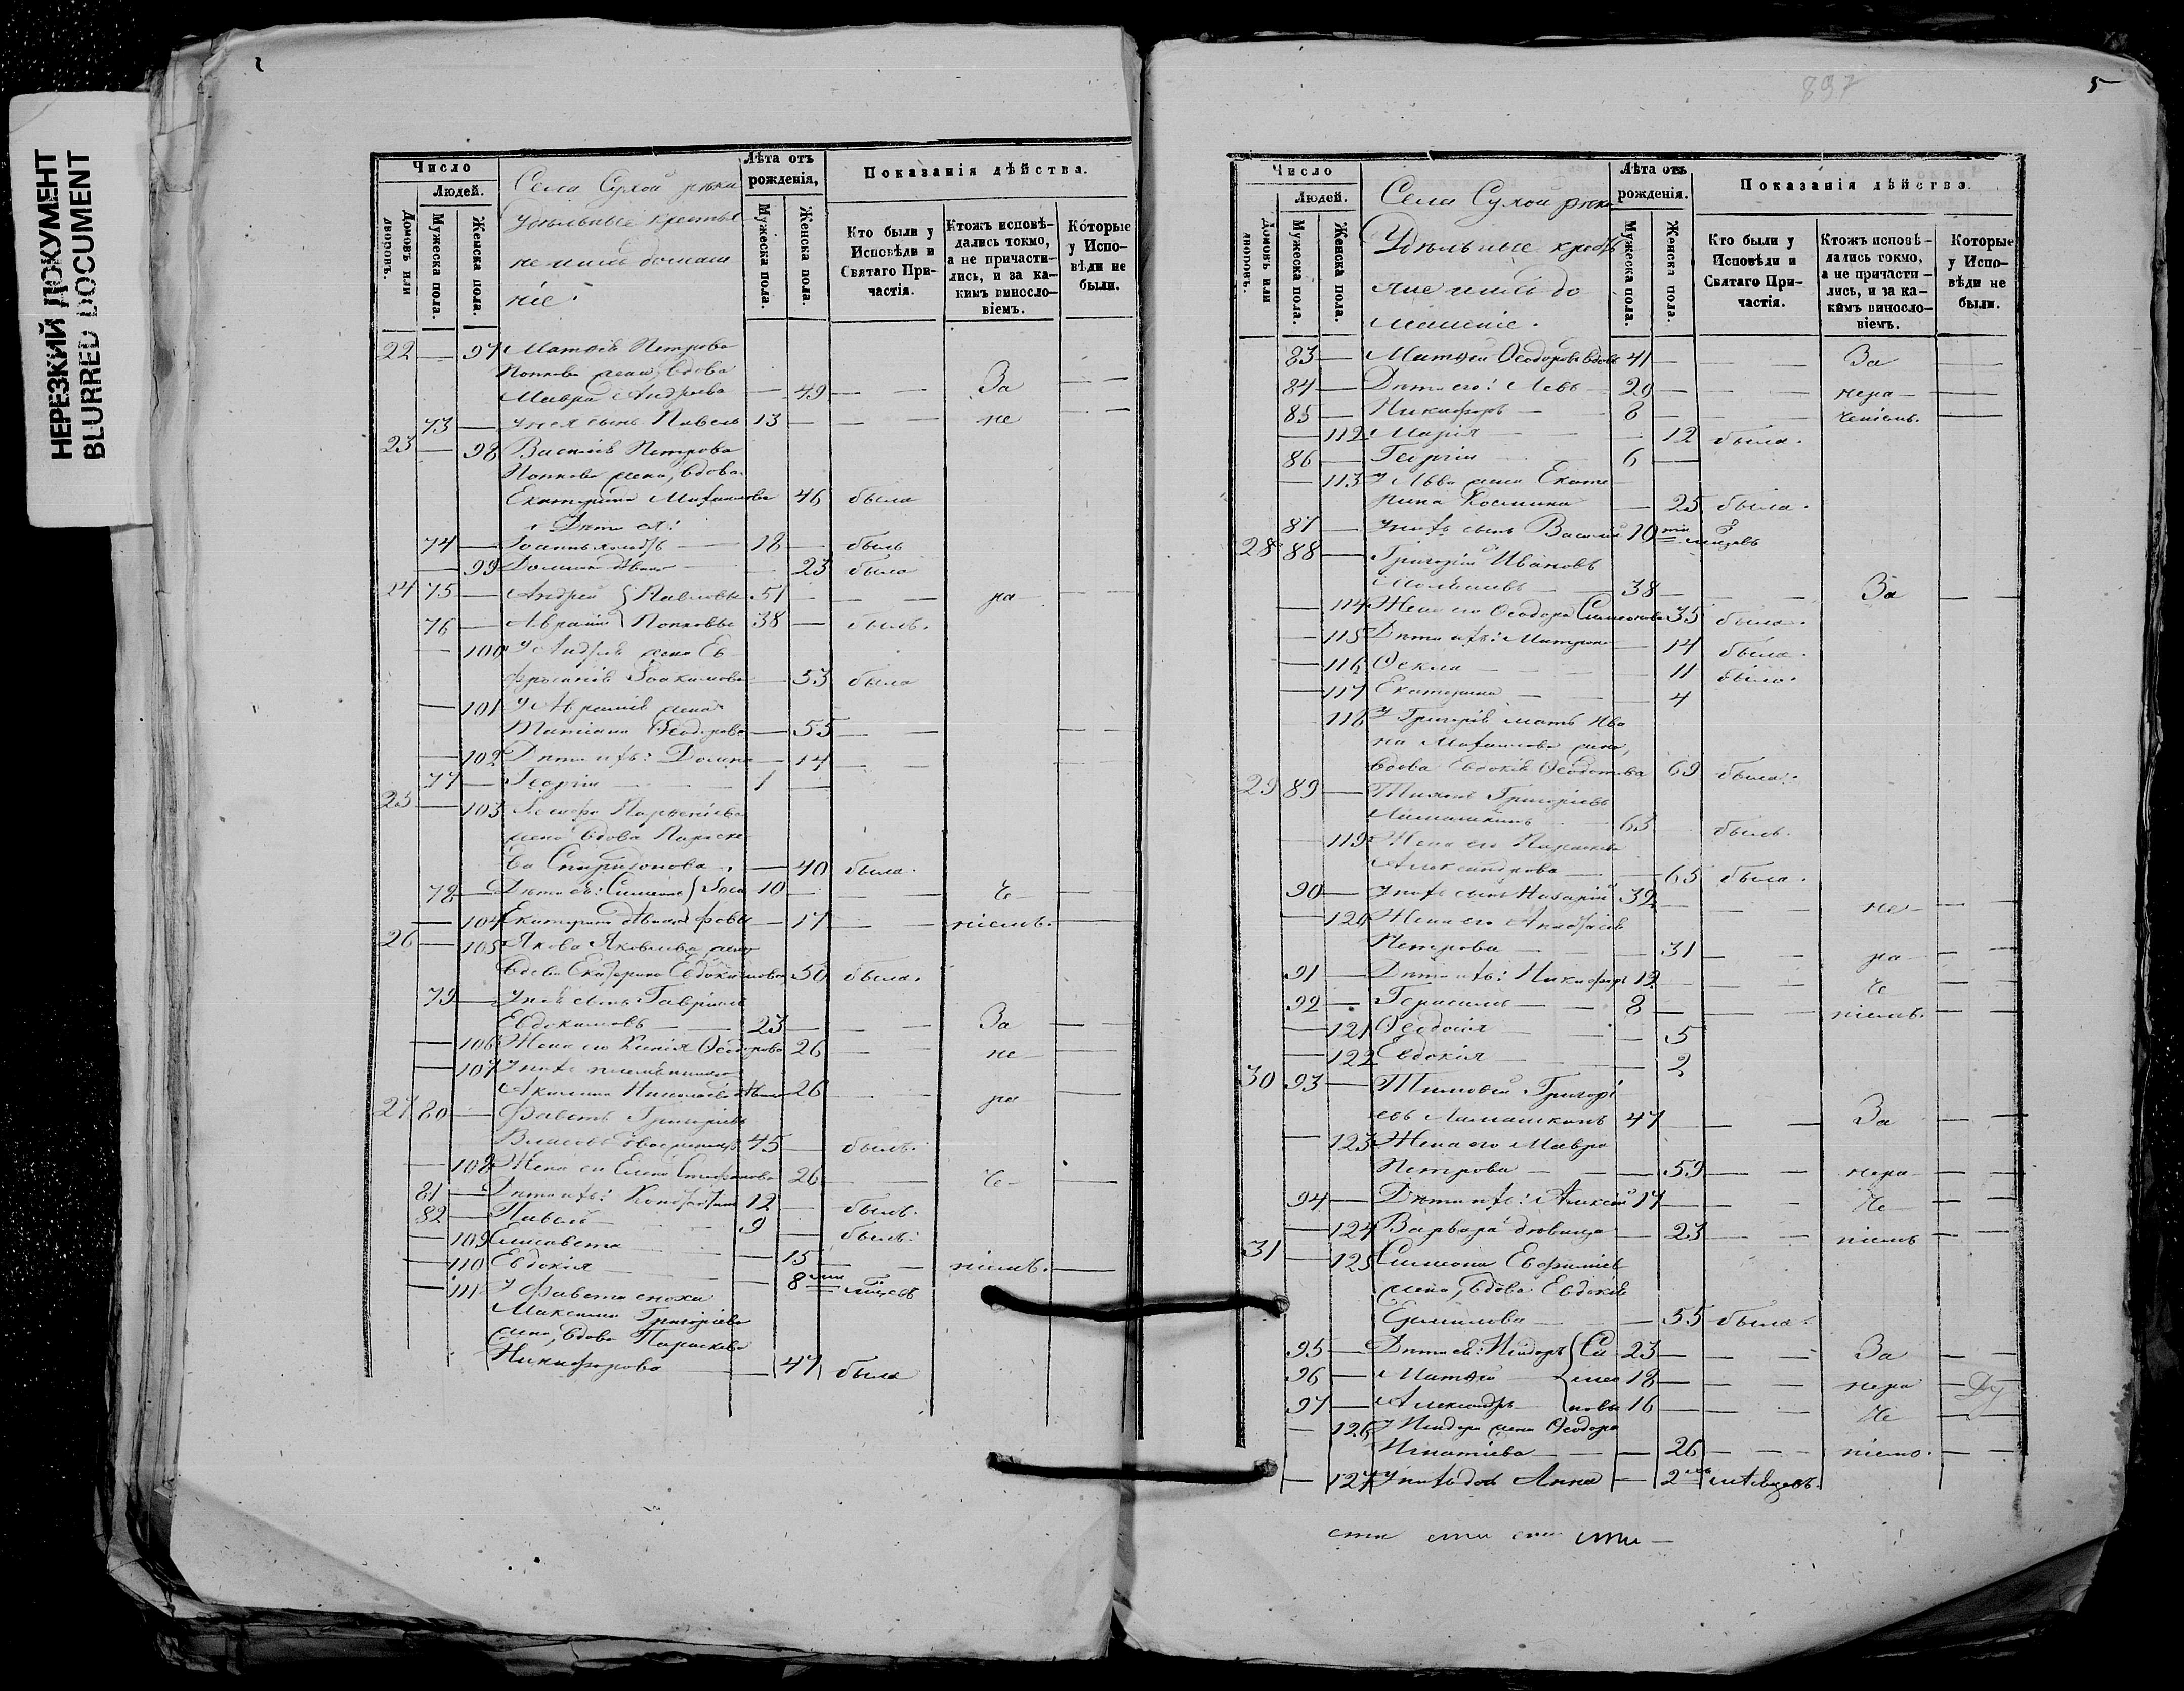 НЕРЕЗКИЙ ДОКУМЕНТ
BLURRED DOCUMENT
Число
Людей.
Домовъ или дворовъ.
Мужеска пола.
Женска пола.
Села Сухой рѣки
Удѣльные крестья
не и ихъ домаш
ніе
Лѣта отъ рожденія,
Мужеска пола.
Женска пола.
Показанія дѣйства.
Кто были у Исповѣди и Святаго Причастія.
Ктожъ исповѣдались токмо, а не причастились, и за какимъ винословіемъ.
Которые у Исповѣди не были.
22 — 97 Матѳія Петрова
Попкова жена, вдова
Мавра Андреева — 49 — — За — —
73 — У нея сынъ Павелъ 13 — — — не — —
23 — 98 Василія Петрова
Попкова жена, вдова
Екатерина Михаилова 46 была
Дѣти ея:
74 — Іоаннъ — 18 — былъ
— 99 Домна дѣвица — 23 была
24 75 — Андрей Павловы 51 — — — ра — —
76 — Аврамій Попковы 38 — былъ.
— 100 У Андрея жена Ев
фросинія Іоакимова — 53 была
— 101 У Аврамія жена
Татіана Ѳеодорова — 55 — — — —
— 102 Дѣти ихъ: Домна — 14 — —
77 — Георгій — 1 —
25 — 103 Іосифа Парѳеніева
жена вдова Параске
ва Спиридонова — 40 была.
78 — Дѣти ея: Симеонъ Іоси 10 — — — че —
— 104 Екатерина дѣвица фовы — 17 — — ніемъ. —
26 — 105 Якова Яковлева жена
вдова Екатерина Евдокимова 50 была.
79 — У нея сынъ Гавріилъ
Евдокимовъ — 23 — — — За — —
— 106 Жена его Ксенія Ѳеодорова 26 — — не —
— 107 У нихъ племянница
Акилина Николаева дѣвица 26 — — ра —
27 80 — Фавстъ Григорьевъ
Власовъ 45 — былъ.
— 108 Жена его Елена Стефанова 26 — — че —
81 — Дѣти ихъ: 12 — былъ.
82 — Павелъ — 9 — былъ.
— 109 Елисавета — — 15 — —
— 110 Евдокія — — 8 мѣсцевъ ніемъ. —
— 111 У Фавста сноха
Максима Григоріева
жена, вдова Параскева
Никифорова — 47 была
897
5
Число
Людей.
Домовъ или дворовъ.
Мужеска пола.
Женска пола.
Села Сухой рѣки
Удѣльные крестья
не и ихъ до
машніе.
Лѣта отъ рожденія.
Мужеска пола.
Женска пола.
Показанія дѣйства.
Кто были у Исповѣди и Святаго Причастія.
Ктожъ исповѣдались токмо, а не причастились, и за какимъ винословіемъ.
Которые у Исповѣди не были.
83 — Матѳей Ѳеодоровъ вдовъ 41 — — — За —
84 — Дѣти его: Левъ — 20 — — — нера —
85 — Никифоръ — 8 — — — ченіемъ. —
— 112 Марія — — 12 была.
86 — Георгій — 6 —
— 113 У Льва жена Екате
рина Космина — 25 была.
87 — У нихъ сынъ Василій 10 ти мѣсцевъ
28 88 — Григорій Ивановъ
38 — — — За — —
— 114 Жена его Ѳеодора Симеонова 35 была.
— 115 Дѣти ихъ: Матрона — 14 была.
— 116 Ѳекла — — 11 была.
— 117 Екатерина — — 4
118 У Григорія мать Ива
на Михаилова жена,
вдова Евдокія Ѳеодотова 69 была.
29 89 — Тихонъ Григорьевъ
Лимашкинъ 63 былъ.
— 119 Жена его Параскева
Александрова — — 65 была.
90 — У нихъ сынъ Назарій 32 — — — не — —
— 120 Жена его Анастасія
Петрова — — 31 — — ра — —
91 — Дѣти ихъ: Никифоръ 12 — — че — —
92 — Герасимъ — 8 — — — ніемъ. — —
— 121 Ѳеодосія — — 5
— 122 Евдокія — — 2
30 93 — Тимоѳей Григорі
евъ Лимашкинъ 47 — — — За — —
— 123 Жена его Мавра
Петрова — — 59 — — нера — —
94 — Дѣти ихъ: Алексѣй 17 — — — че — —
— 124 Варвара дѣвица — 23 — — ніемъ — —
31 — 125 Симеона Евфиміева
жена, вдова Евдокія
Ермилова — — 55 была.
95 — Дѣти ея: Исидоръ Си 23 — — — За — —
96 — Матѳей мео 18 — — — нера — —
97 — Александръ новы 16 — — — че — —
— 126 У Исидора жена Ѳеодора
Игнатіева — — 26 — — ніемъ. — —
— 127 У нихъ дочь Анна — 2 мѣсяцевъ.